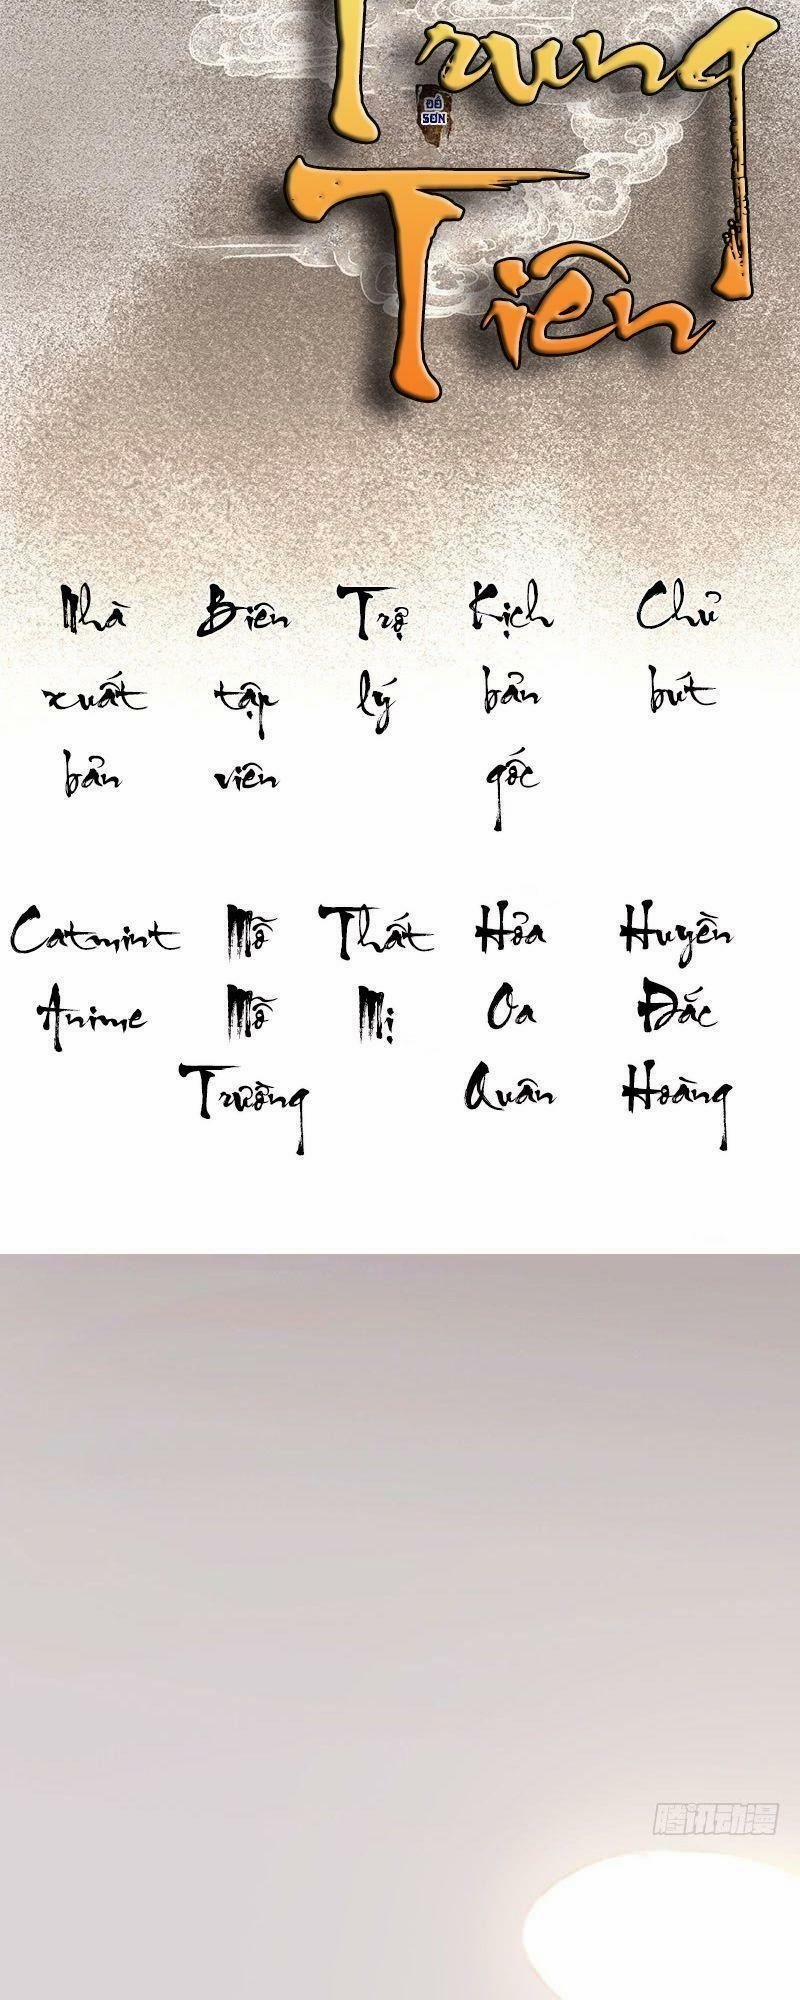 Trung
ĐẾ
SƠN
Tiên
Nhà Biên Trợ Kịch Chủ
xuất tập lý bản bút
bản viên gốc
Catmint Mỗ Thất Hỏa Huyền
Anime Mỗ Mị Oa Đắc
Trường Quân Hoàng
腾讯动漫